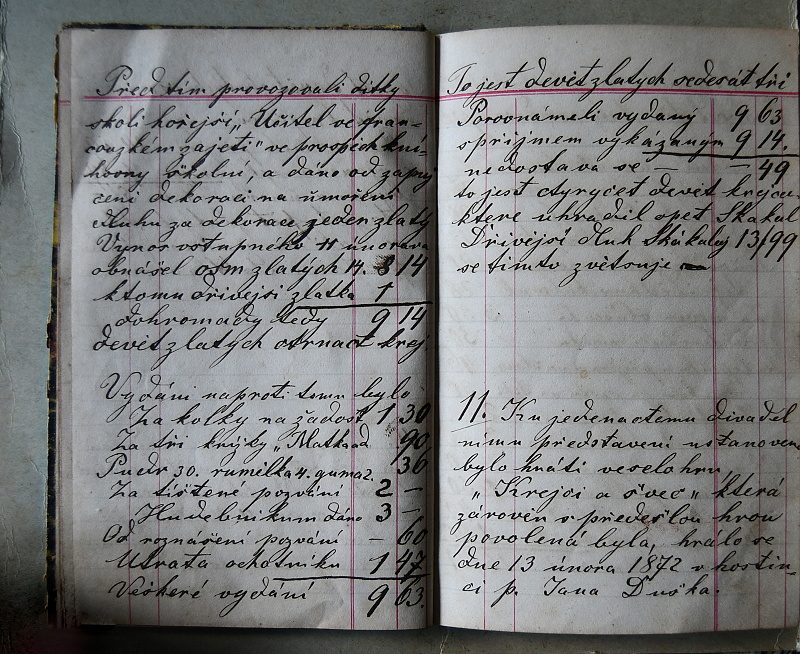 Před tím provozovali dítky
školi hořejší „Učitel ve fran-
couzkém zajetí" ve prospěch kni-
hovny školní, a dáno od zapuj
čení dekorací na úmoření
dluhu za dekorace jeden zlatý
Vynos vstupného 11 unorava
obnášel osm zlatých 14. 8 14
ktomu dřívejsí zlatka 1
dohromady tedy 9 14
devět zlatych čtrnact krej.
Vydání naproti tomu bylo
Za kolky na žadost 1 30
Za tři knižky „Matka od 90
Pudr 30. rumělka 4. guma 2. 36
Za tištené pozvání 2 —
Hudebnikum dáno 3 —
Od roznášení pozvání — 60
Utrata ochotníku 1 47
Veškeré vydání 9 63.
To jest devět zlatych šedesát tři
Porovnámeli vydaný 9 63
s příjmem vykázaným 9 14.
nedostava se — — 49
to jest čtyrycet devět krejca
ktere uhradil opět Skákal
Dřívejsí dluh Skákaluj 13/99
se tímto zvětsuje —
11. Ku jedenactemu divadel
nímu představení ustanoveno
bylo hráti veselohru
„Krejcí a švec" která
zároveň s předešlou hrou
povolená byla, hrálo se
dne 13 února 1872 v hostin-
ci p. Jana Duška.